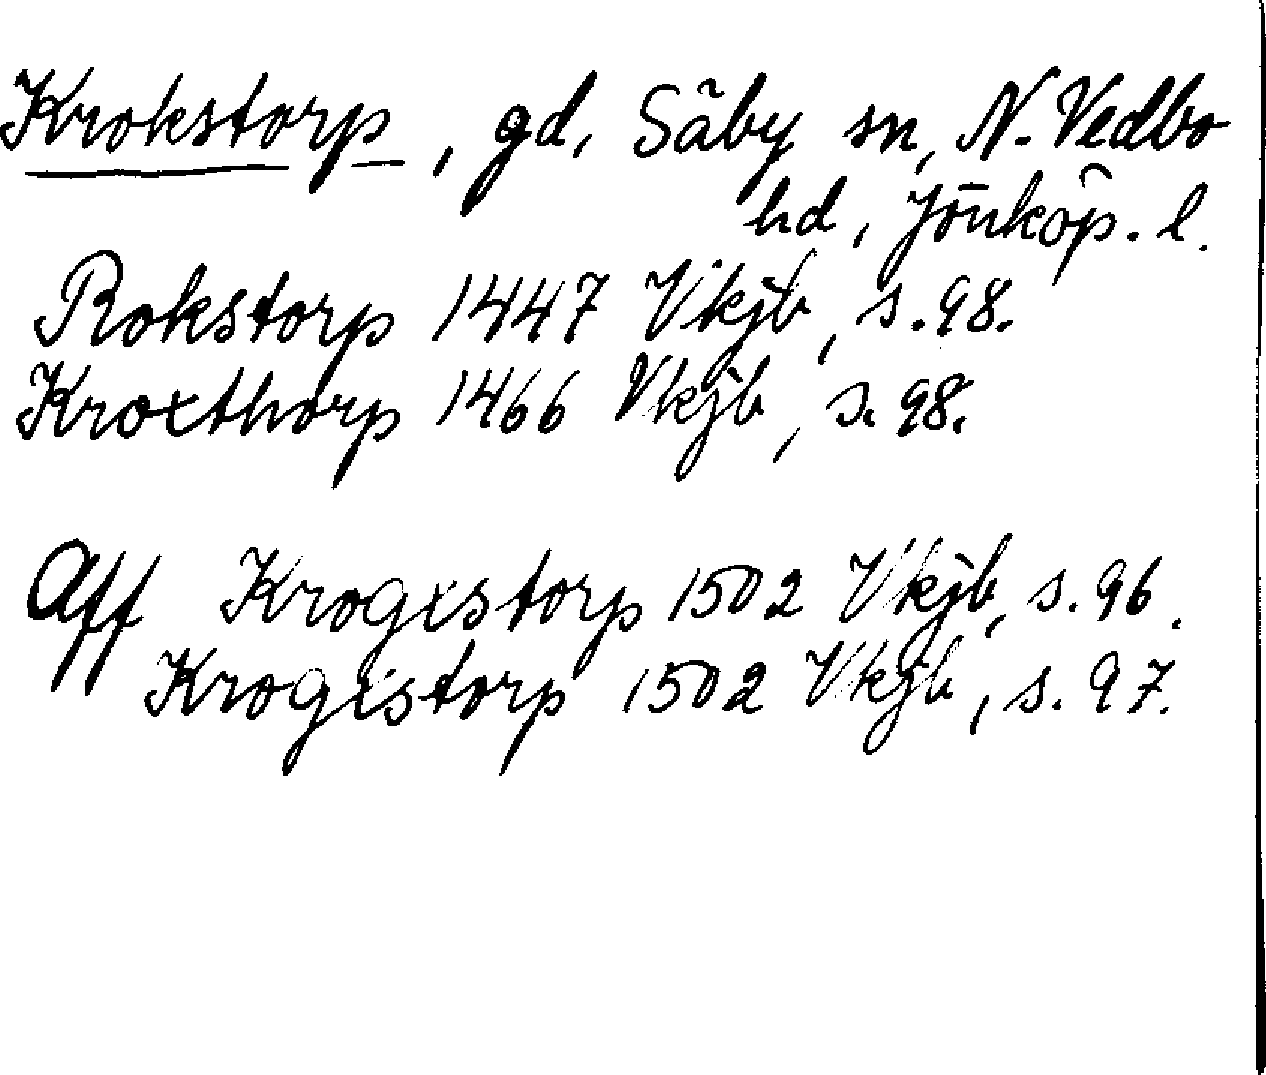 Krokstorp, gd, Säby sn, N. Vedbo
hd, Jönköp. l.
Rokstorp 1447 Vkjb, s. 98.
Kroxthorp 1466 Vkjb, s. 98.
Aff Krogxstorp 1502 Vkjb, s. 96.
Krogistorp 1502 Vkjb, s. 97.